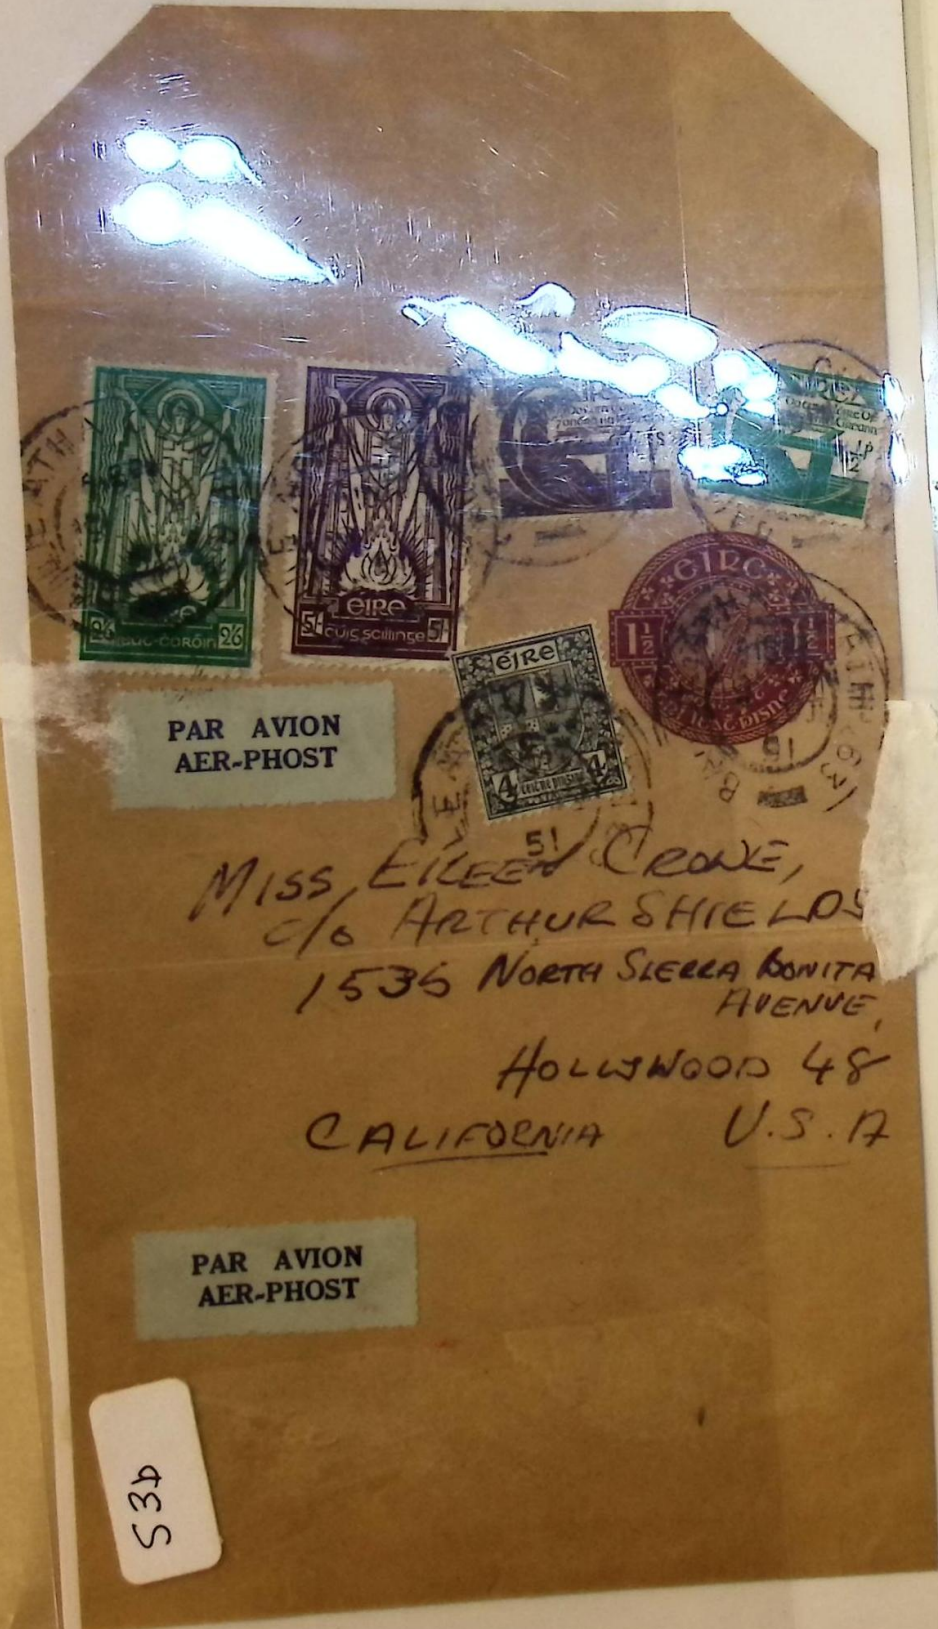 ÉIRE
2/6 2/6
ÉIRE
5/- cúig scillinge 5/-
ÉIRE
1½ 1½
ÉIRE
4 4
51
51
PAR AVION
AER-PHOST
MISS EILEEN CROWE,
c/o ARTHUR SHIELDS
1535 NORTH SIERRA BONITA
AVENUE,
HOLLYWOOD 48
CALIFORNIA U.S.A
PAR AVION
AER-PHOST
S3b